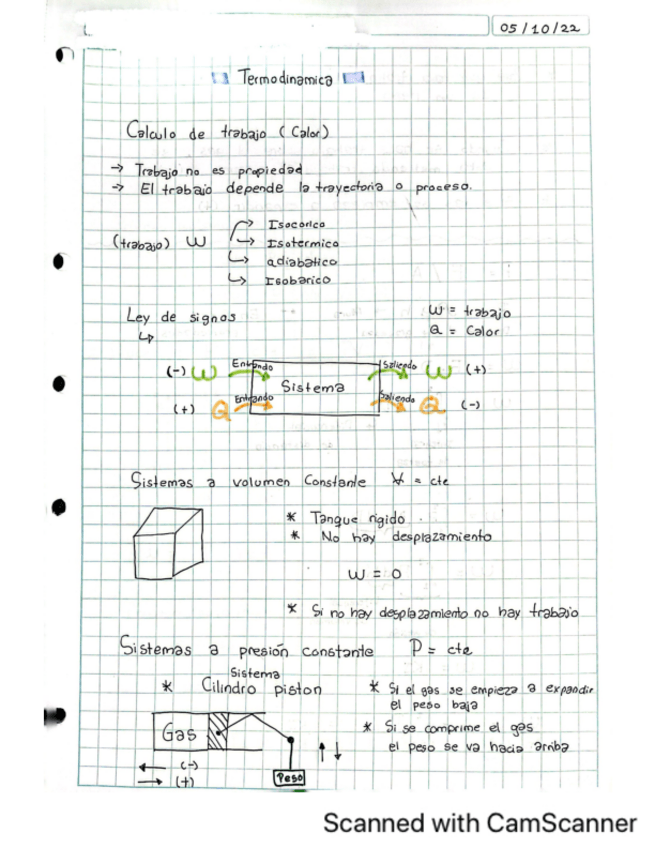 05/10/22
Termodinamica
Calculo de trabajo (Calor)
→ Trabajo no es propiedad
→ El trabajo depende la trayectoria o proceso.
(trabajo) W
Isocorico
Isotermico
adiabatico
Isobarico
Ley de signos
W = trabajo
Q = Calor
(-) W Entrando Sistema Saliendo W (+)
(+) Q Entrando Saliendo Q (-)
Sistemas a volumen Constante V = cte
* Tanque rigido
* No hay desplazamiento
W = 0
* Si no hay desplazamiento no hay trabajo
Sistemas a presión constante P = cte
Sistema
* Cilindro piston
* Si el gas se empieza a expandir
el peso baja
* Si se comprime el gas
el peso se va hacia arriba
Gas
Peso
← (-)
→ (+)
Scanned with CamScanner